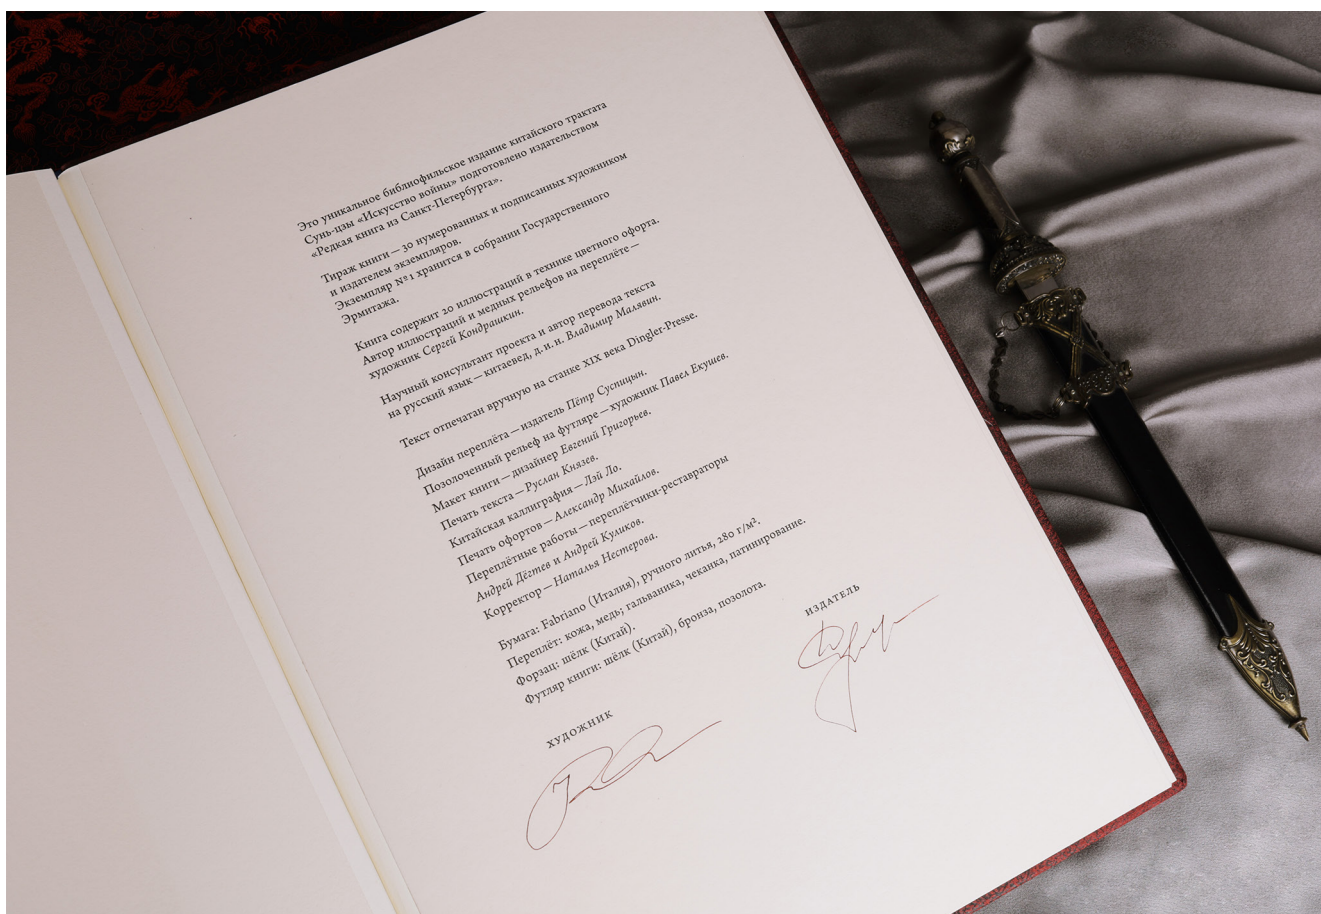 Это уникальное библиофильское издание китайского трактата
Сунь-цзы «Искусство войны» подготовлено издательством
«Редкая книга из Санкт-Петербурга».
Тираж книги — 30 нумерованных и подписанных художником
и издателем экземпляров.
Экземпляр №1 хранится в собрании Государственного
Эрмитажа.
Книга содержит 20 иллюстраций в технике цветного офорта.
Автор иллюстраций и медных рельефов на переплёте —
художник Сергей Кондрашкин.
Научный консультант проекта и автор перевода текста
на русский язык — китаевед, д. и. н. Владимир Малявин.
Текст отпечатан вручную на станке XIX века Dingler-Presse.
Дизайн переплёта — издатель Пётр Суспицын.
Позолоченный рельеф на футляре — художник Павел Екушев.
Макет книги — дизайнер Евгений Григорьев.
Печать текста — Руслан Князев.
Китайская каллиграфия — Лэй Ло.
Печать офортов — Александр Михайлов.
Переплётные работы — переплётчики-реставраторы
Андрей Дёгтев и Андрей Куликов.
Корректор — Наталья Нестерова.
Бумага: Fabriano (Италия), ручного литья, 280 г/м².
Переплёт: кожа, медь; гальваника, чеканка, патинирование.
Форзац: шёлк (Китай).
Футляр книги: шёлк (Китай), бронза, позолота.
ИЗДАТЕЛЬ
ХУДОЖНИК